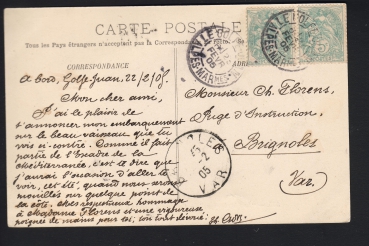 CARTE POSTALE
Tous les Pays étrangers n'acceptent pas la Correspondance
CORRESPONDANCE
A bord, Golfe-Juan, 22/2/05.
Mon cher ami,
J'ai le plaisir de
t'annoncer mon embarquement
sur le beau vaisseau que tu
vois ci-contre. Comme il fait
partie de l'Escadre de la
Méditerranée, c'est te dire que
j'aurai l'occasion d'aller te
voir, cet été, quand nous serons
mouillés sur quelque point de
la côte. Mes respectueux hommages
à Madame Florens et une vigoureuse
poignée de mains pour toi, ton tout dévoué:
Monsieur Ch. Florens,
Juge d'Instruction,
Brignoles
Var.
VAR
05
5